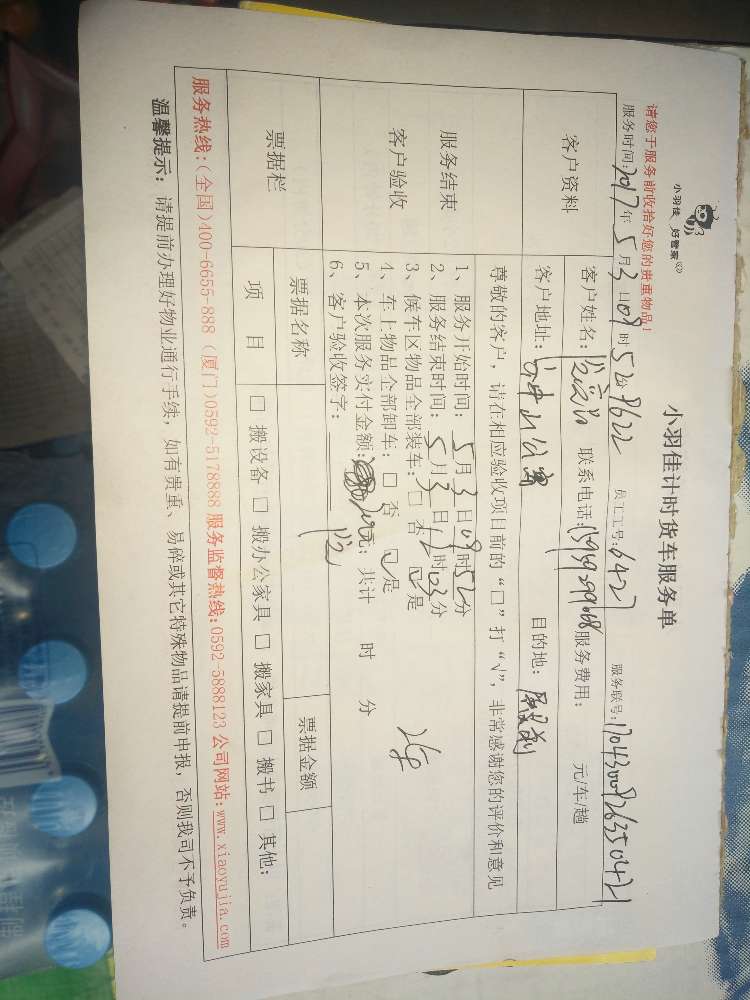 小羽佳 好管家
请您于服务前收拾好您的贵重物品！
小羽佳计时货车服务单
服务时间：2017年 5月 3日 09时 52分 9622 员工工号：6427 服务联号：
客户资料
客户姓名： 联系电话： 服务费用： 元/车/趟
客户地址： 目的地：
服务结束
客户验收
尊敬的客户，请在相应验收项目前的“□”打“√”，非常感谢您的评价和意见
1、服务开始时间：5月3日09时52分
2、服务结束时间：5月3日12时03分
3、候车区物品全部装车：□ 否 ☑ 是
4、车上物品全部卸车：□ 否 ☑ 是
5、本次服务实付金额： 元；共计 时 分
6、客户验收签字：
票据栏
票据名称 票据金额
项 目 □ 搬设备 □ 搬办公家具 □ 搬家具 □ 搬书 □ 其他：
服务热线：(全国)400-6655-888 (厦门)0592-5178888 服务监督热线：0592-5888123 公司网站：www.xiaoyujia.com
温馨提示： 请提前办理好物业通行手续，如有贵重，易碎或其它特殊物品请提前申报，否则我司不予负责。